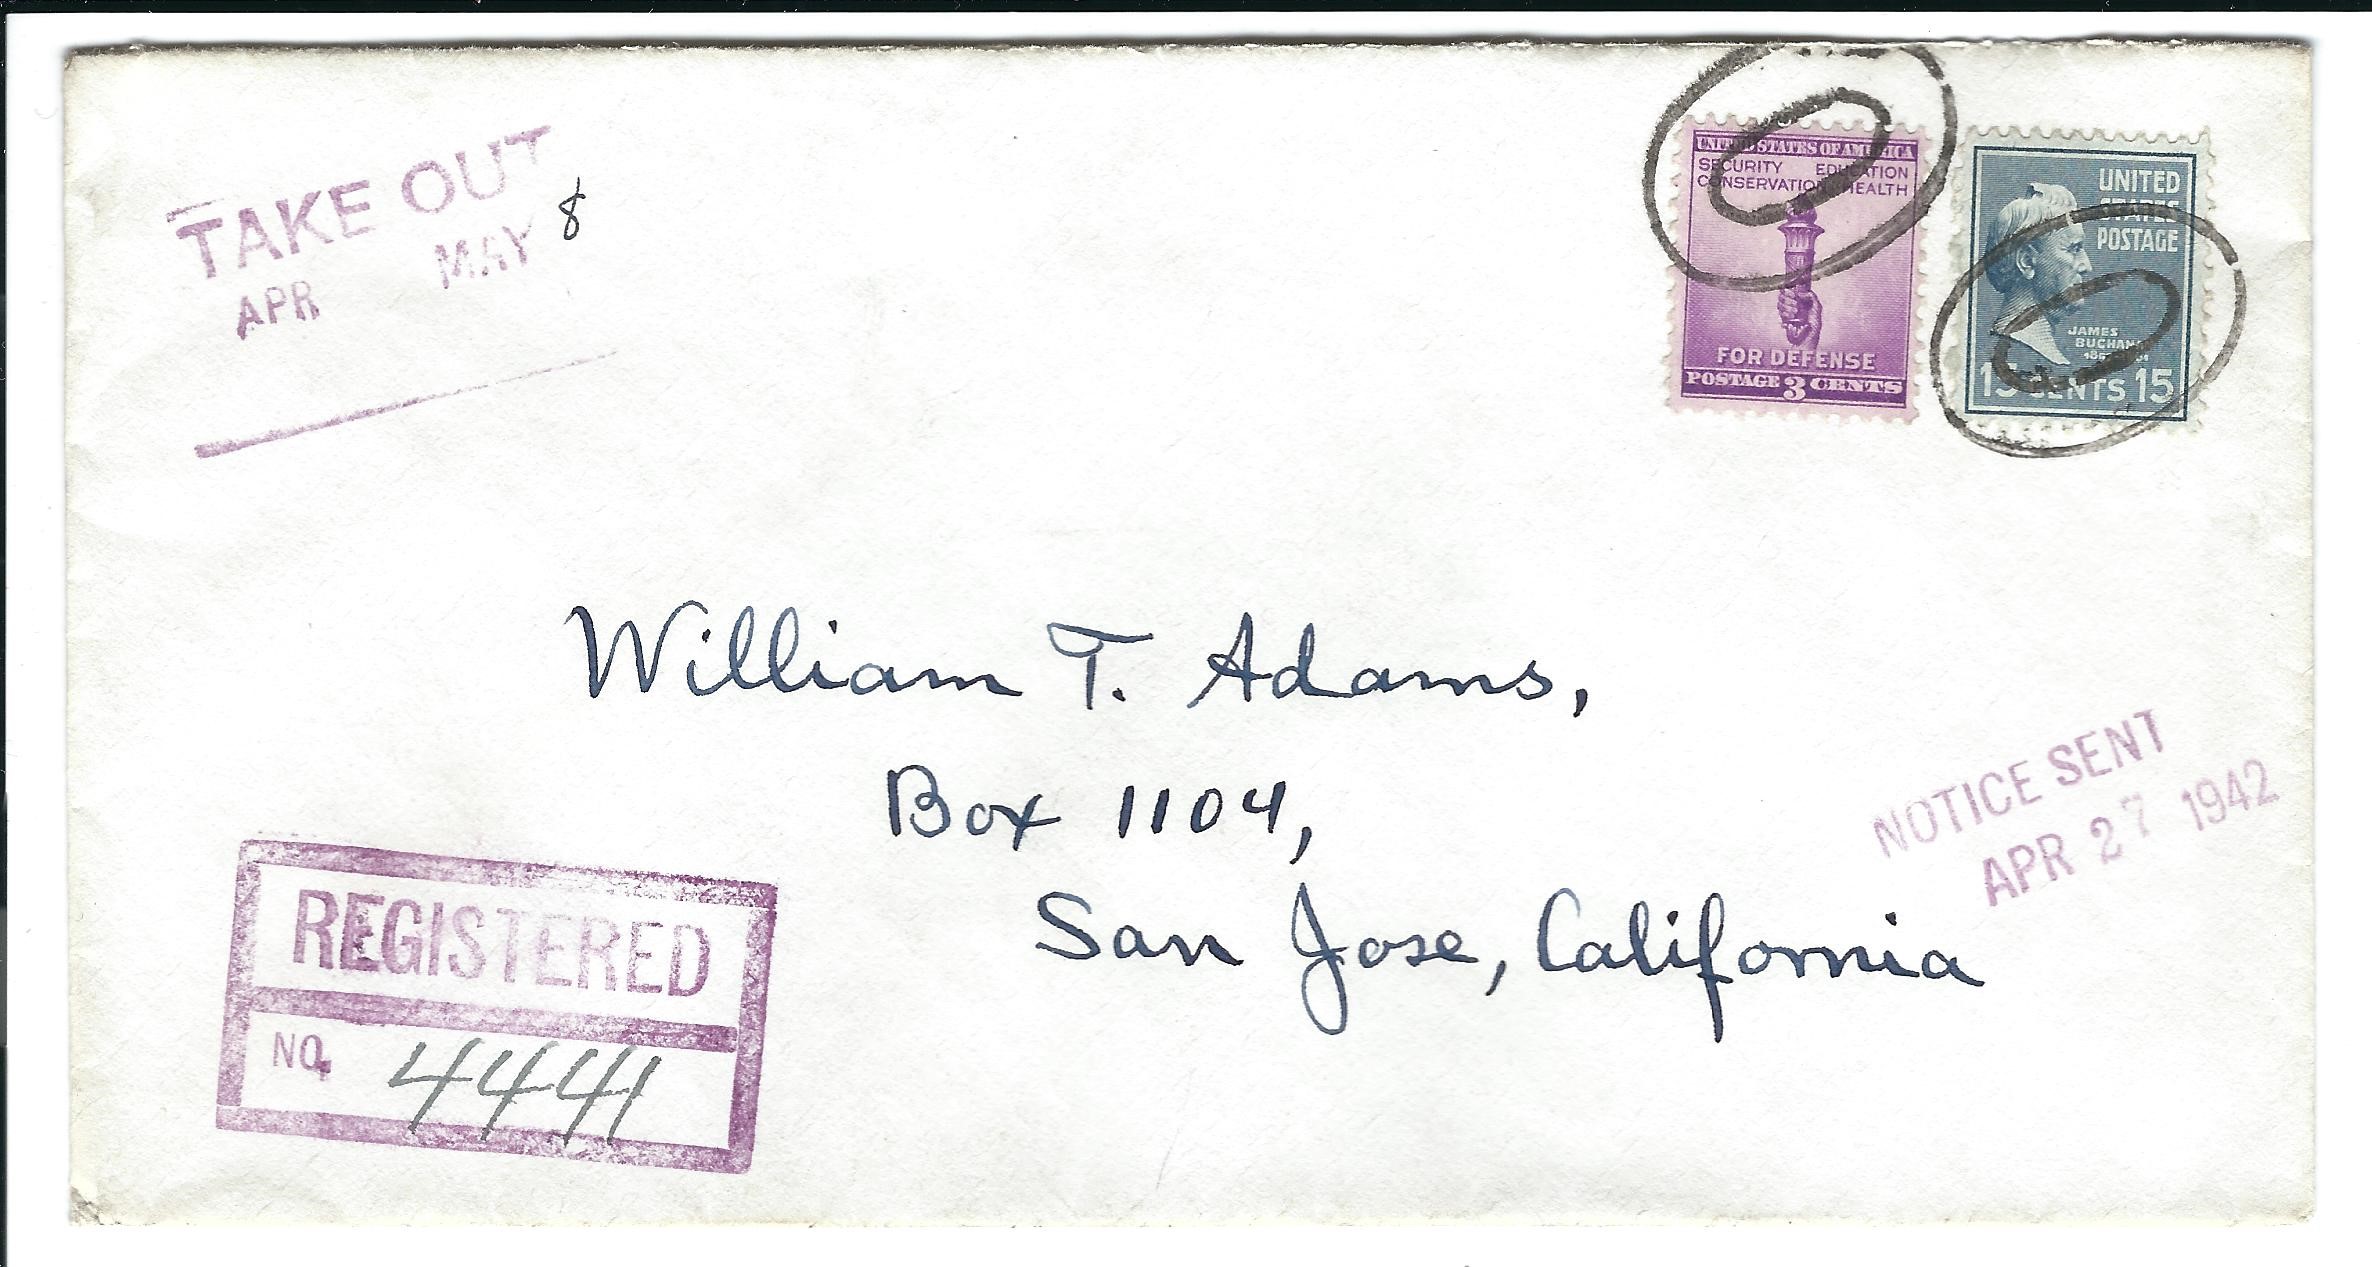 TAKE OUT
APR MAY 8
UNITED STATES OF AMERICA
SECURITY EDUCATION
CONSERVATION HEALTH
FOR DEFENSE
POSTAGE 3 CENTS
UNITED
STATES
POSTAGE
JAMES
BUCHANAN
15 CENTS 15
William T. Adams,
Box 1104,
San Jose, California
NOTICE SENT
APR 27 1942
REGISTERED
NO. 4441